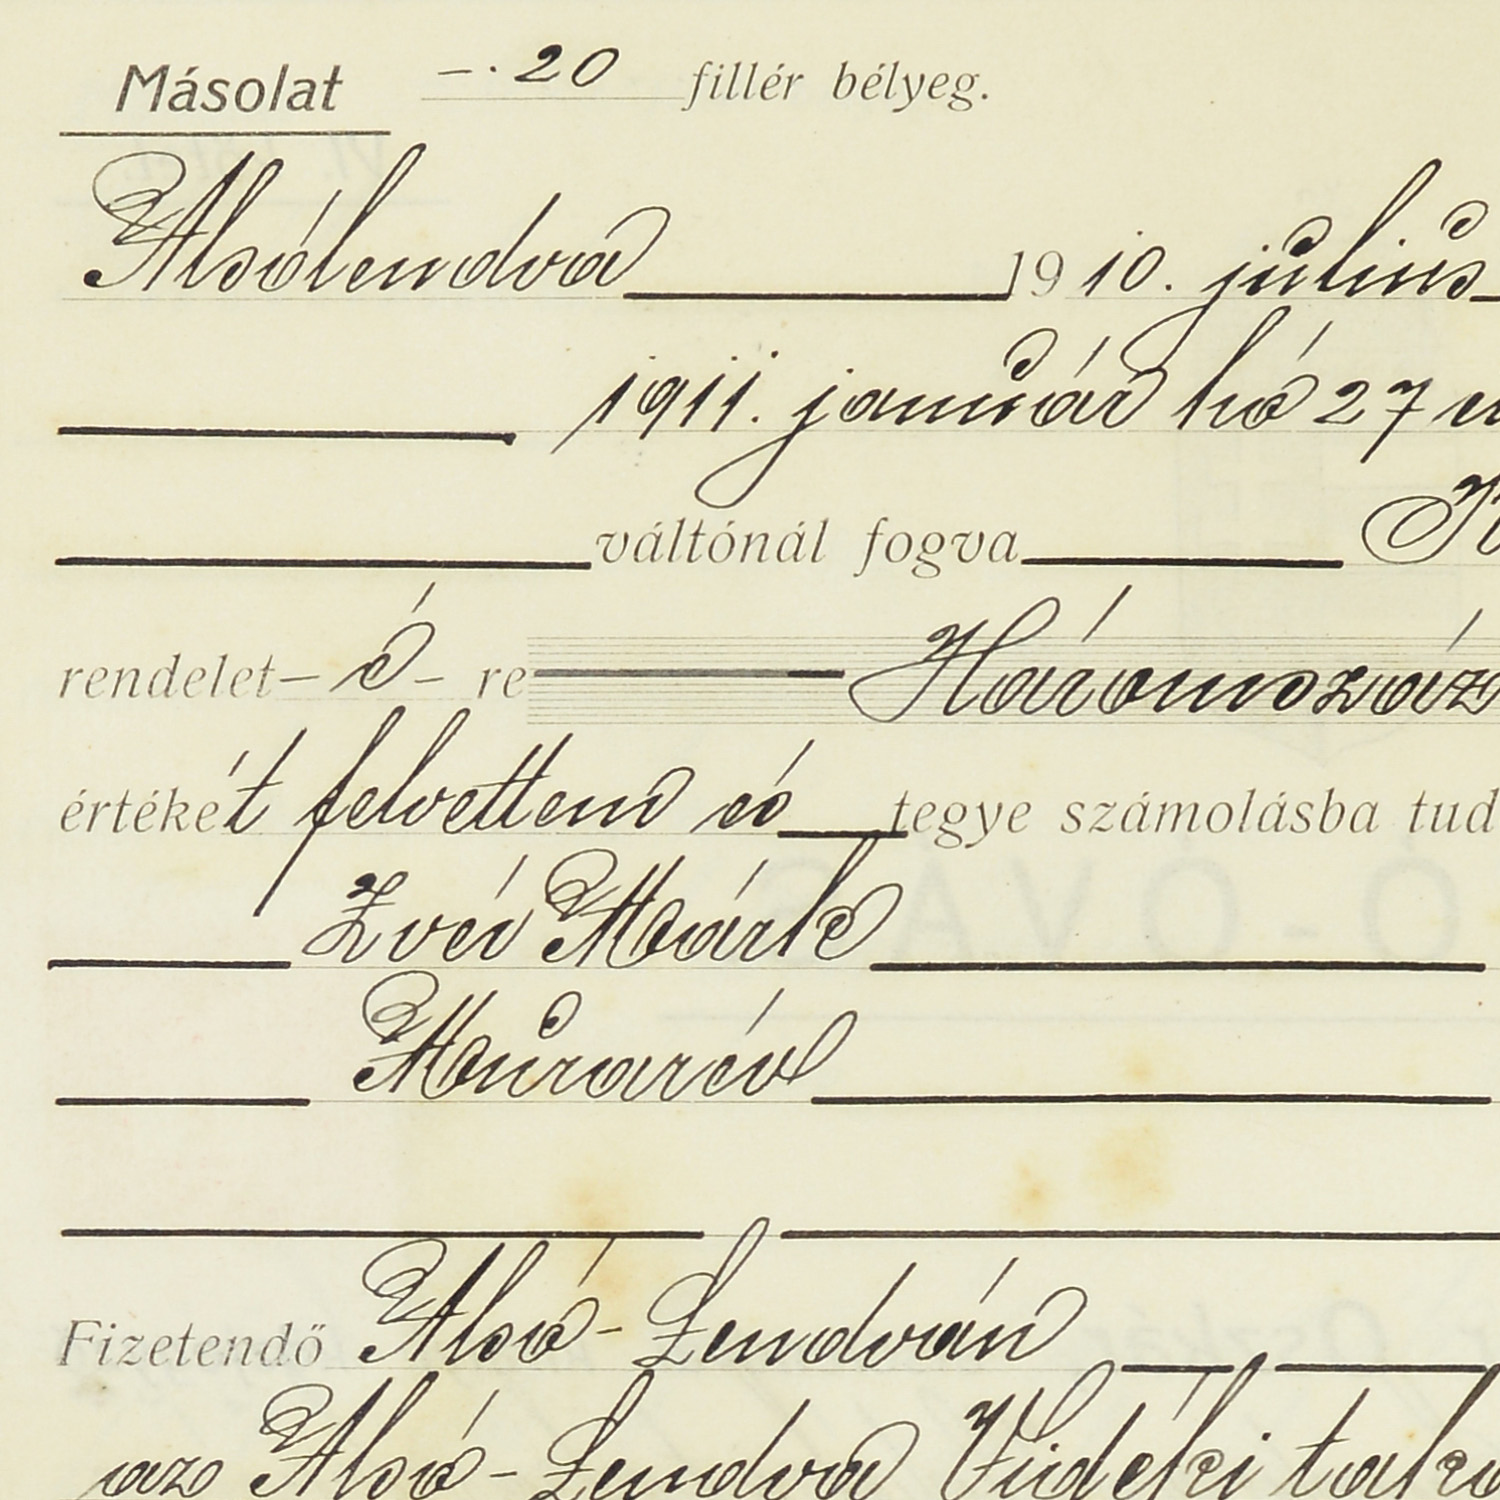 Másolat –. 20 fillér bélyeg.
Alsólendva 1910. július
1911. január hó 27
váltónál fogva
rendelet – é – re Háromszáz
értékét felvettem és tegye számolásba tud
Zvér Márk
Murarév
Fizetendő Alsó-Lendván
az Alsó-Lendva Vidéki taka